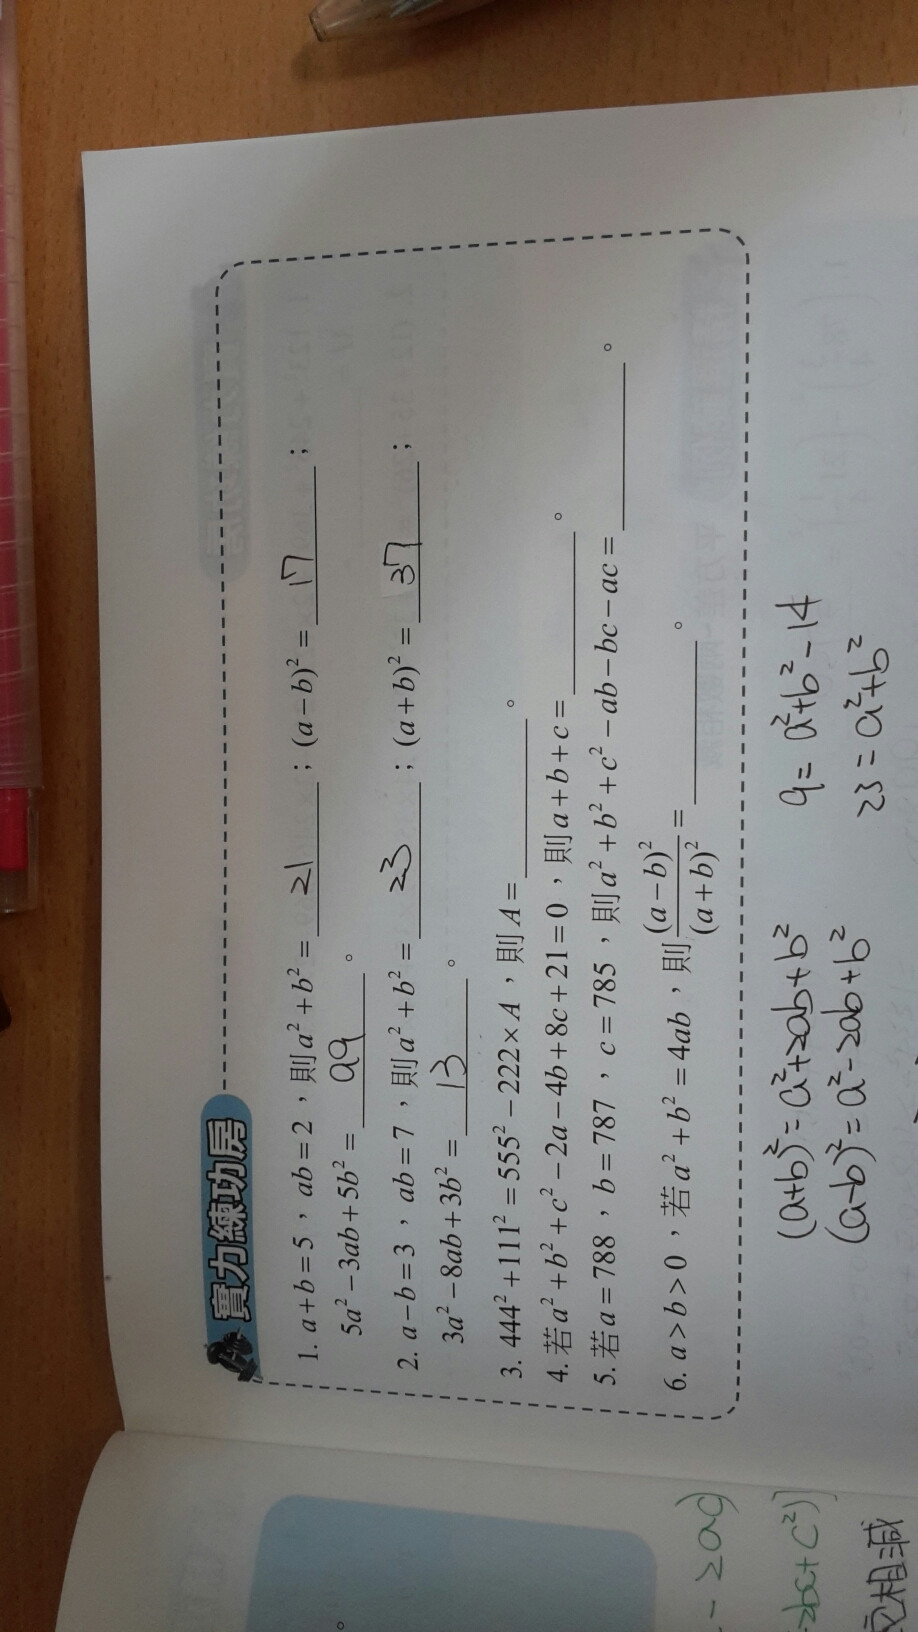 實力練功房
1. a+b=5，ab=2，則a²+b²= 21 ；(a−b)²= 17 ；
5a²−3ab+5b²= 99 。
2. a−b=3，ab=7，則a²+b²= 23 ；(a+b)²= 37 ；
3a²−8ab+3b²= 13 。
3. 444²+111²=555²−222×A，則A=______。
4. 若a²+b²+c²−2a−4b+8c+21=0，則a+b+c=______。
5. 若a=788，b=787，c=785，則a²+b²+c²−ab−bc−ac=______。
6. a>b>0，若a²+b²=4ab，則(a−b)²/(a+b)²=______。
(a+b)²=a²+2ab+b² 9=a²+b²−14
(a−b)²=a²−2ab+b² 23=a²+b²
- 2ac)
2bc+c²)]
相減